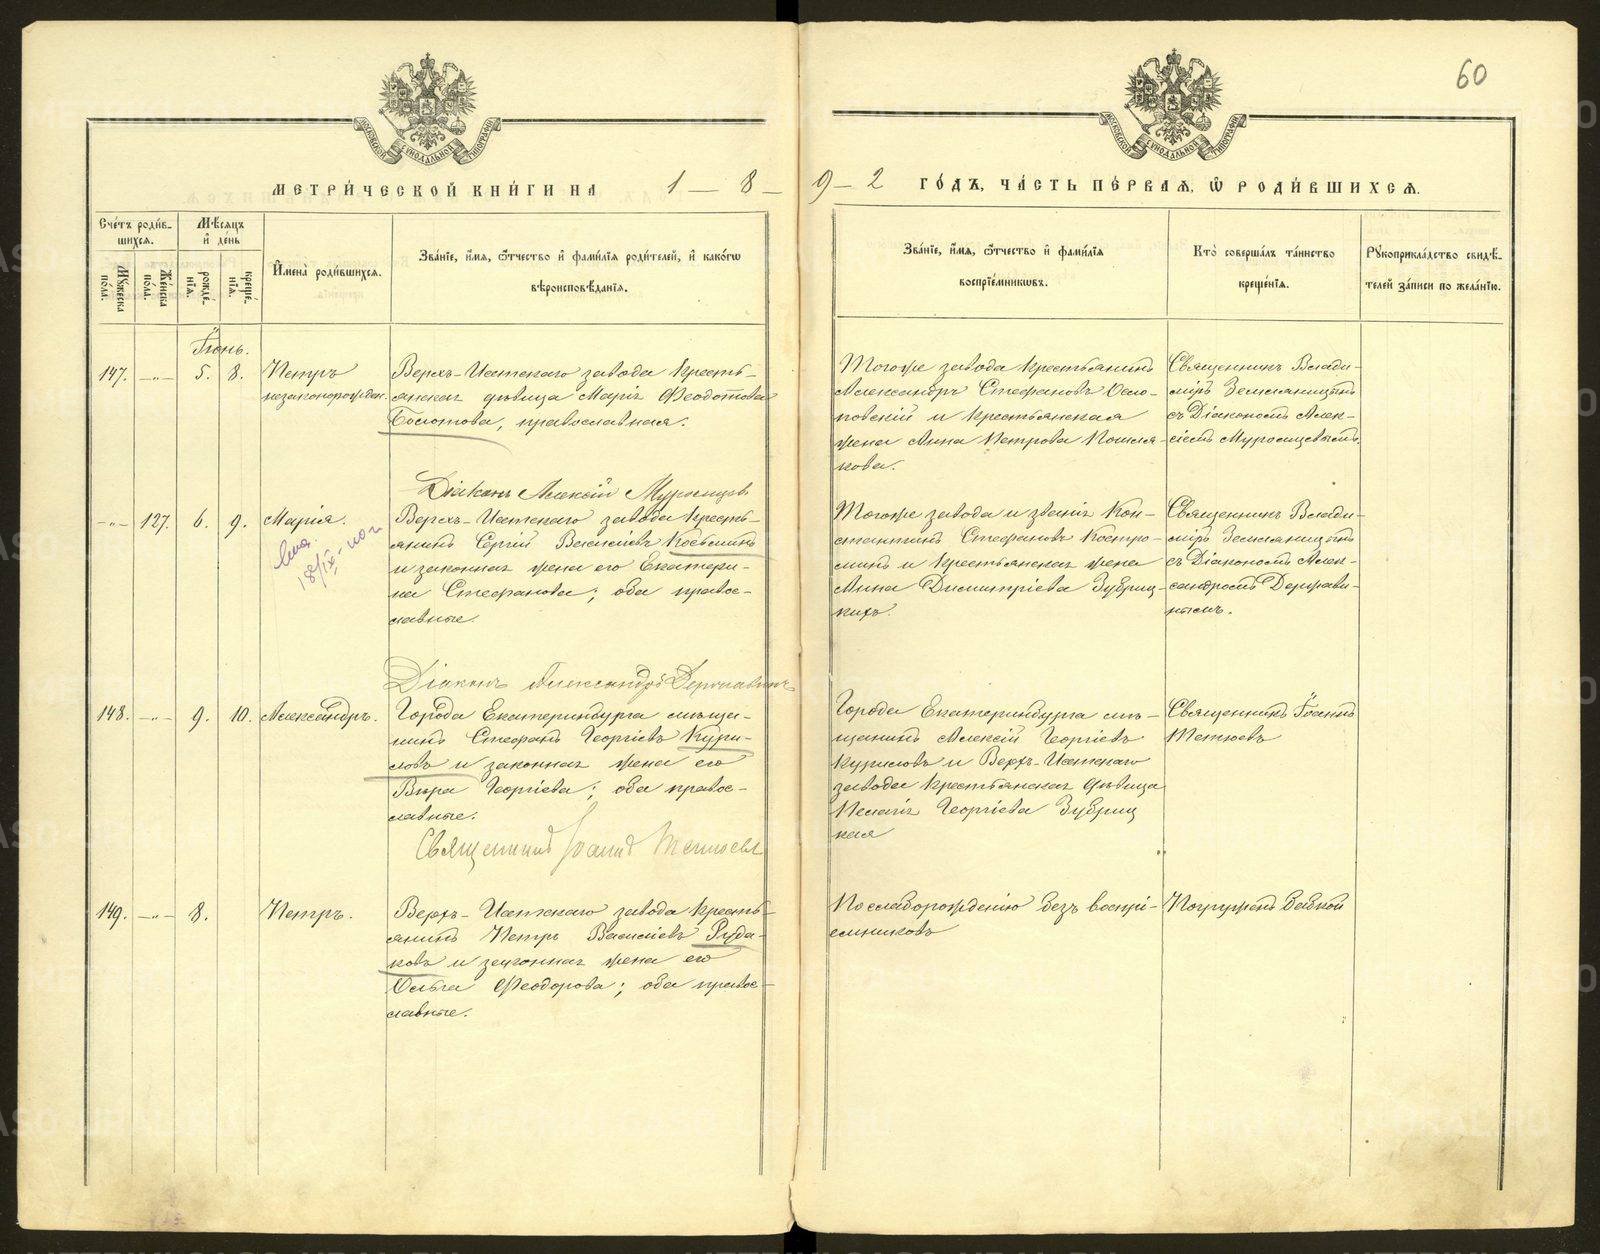 60
МОСКОВСКОЙ СУНОДАЛЬНОЙ ТИПОГРАФІИ
МОСКОВСКОЙ СУНОДАЛЬНОЙ ТИПОГРАФІИ
МЕТРИ́ЧЕСКОЙ КНИ́ГИ НА 1 — 8 —
9 — 2 ГО́ДЪ, ЧА́СТЬ ПЕ́РВАЯ, Ѡ҆ РОДИ́ВШИХСЯ.
Сче́тъ роди́в-
шихся.
Мѣ́сяцъ
и҆ де́нь
Му́жеска
по́ла.
Же́нска
по́ла.
рожде́-
нія.
креще́-
нія.
И҆мена̀ роди́вшихся.
Зва́ніе, и҆́мя, ѻ҆́тчество и҆ фами́лія роди́телей, и҆ како́гѡ
вѣроисповѣ́данія.
Зва́ніе, и҆́мя, ѻ҆́тчество и҆ фами́лія
воспріе́мникѡвъ.
Кто̀ соверша́лъ та́инство
креще́нія.
Рукоприкла́дство свидѣ́-
телей за́писи по жела́нію.
Іюнь.
147. —"— 5. 8. Петръ
незаконорожден.
Верхъ-Исетскаго завода кресть-
янская дѣвица Марія Феодотова
Болотова, православная.
Тогоже завода крестьянинъ
Александръ Стефановъ Осло-
повскій и крестьянская
жена Анна Петрова Пошля-
кова.
Священникъ Влади-
міръ Земляницынъ
съ Діакономъ Алек-
сіемъ Муромцевымъ.
Діаконъ Алексій Муромцевъ
—"— 127. 6. 9. Марія.
18/IX
Верхъ-Исетскаго завода кресть-
янинъ Сергій Васильевъ
и законная жена его Екатери-
на Стефанова; оба правос-
лавные.
Тогоже завода и званія Кон-
стантинъ Стефановъ Костро-
минъ и крестьянская жена
Анна Димитріева Зубриц-
кихъ.
Священникъ Влади-
міръ Земляницынъ
съ Діакономъ Алек-
сандромъ Держави-
нымъ.
Діаконъ Александръ Державинъ
148. —"— 9. 10. Александръ.
Города Екатеринбурга мѣща-
нинъ Стефанъ Георгіевъ Кури-
ловъ и законная жена его
Вѣра Георгіева; оба правос-
лавные.
Города Екатеринбурга мѣ-
щанинъ Алексій Георгіевъ
Куриловъ и Верхъ-Исетскаго
завода крестьянская дѣвица
Пелагія Георгіева Зубриц
кая
Священникъ Іоаннъ
Тетюевъ
Священникъ Іоаннъ Тетюевъ
149. —"— 8. Петръ.
Верхъ-Исетскаго завода кресть-
янинъ Петръ Васильевъ Руда-
ковъ и законная жена его
Ольга Феодорова; оба правос-
лавные.
По слаборожденію безъ воспрі-
емниковъ
Погруженъ бабкой